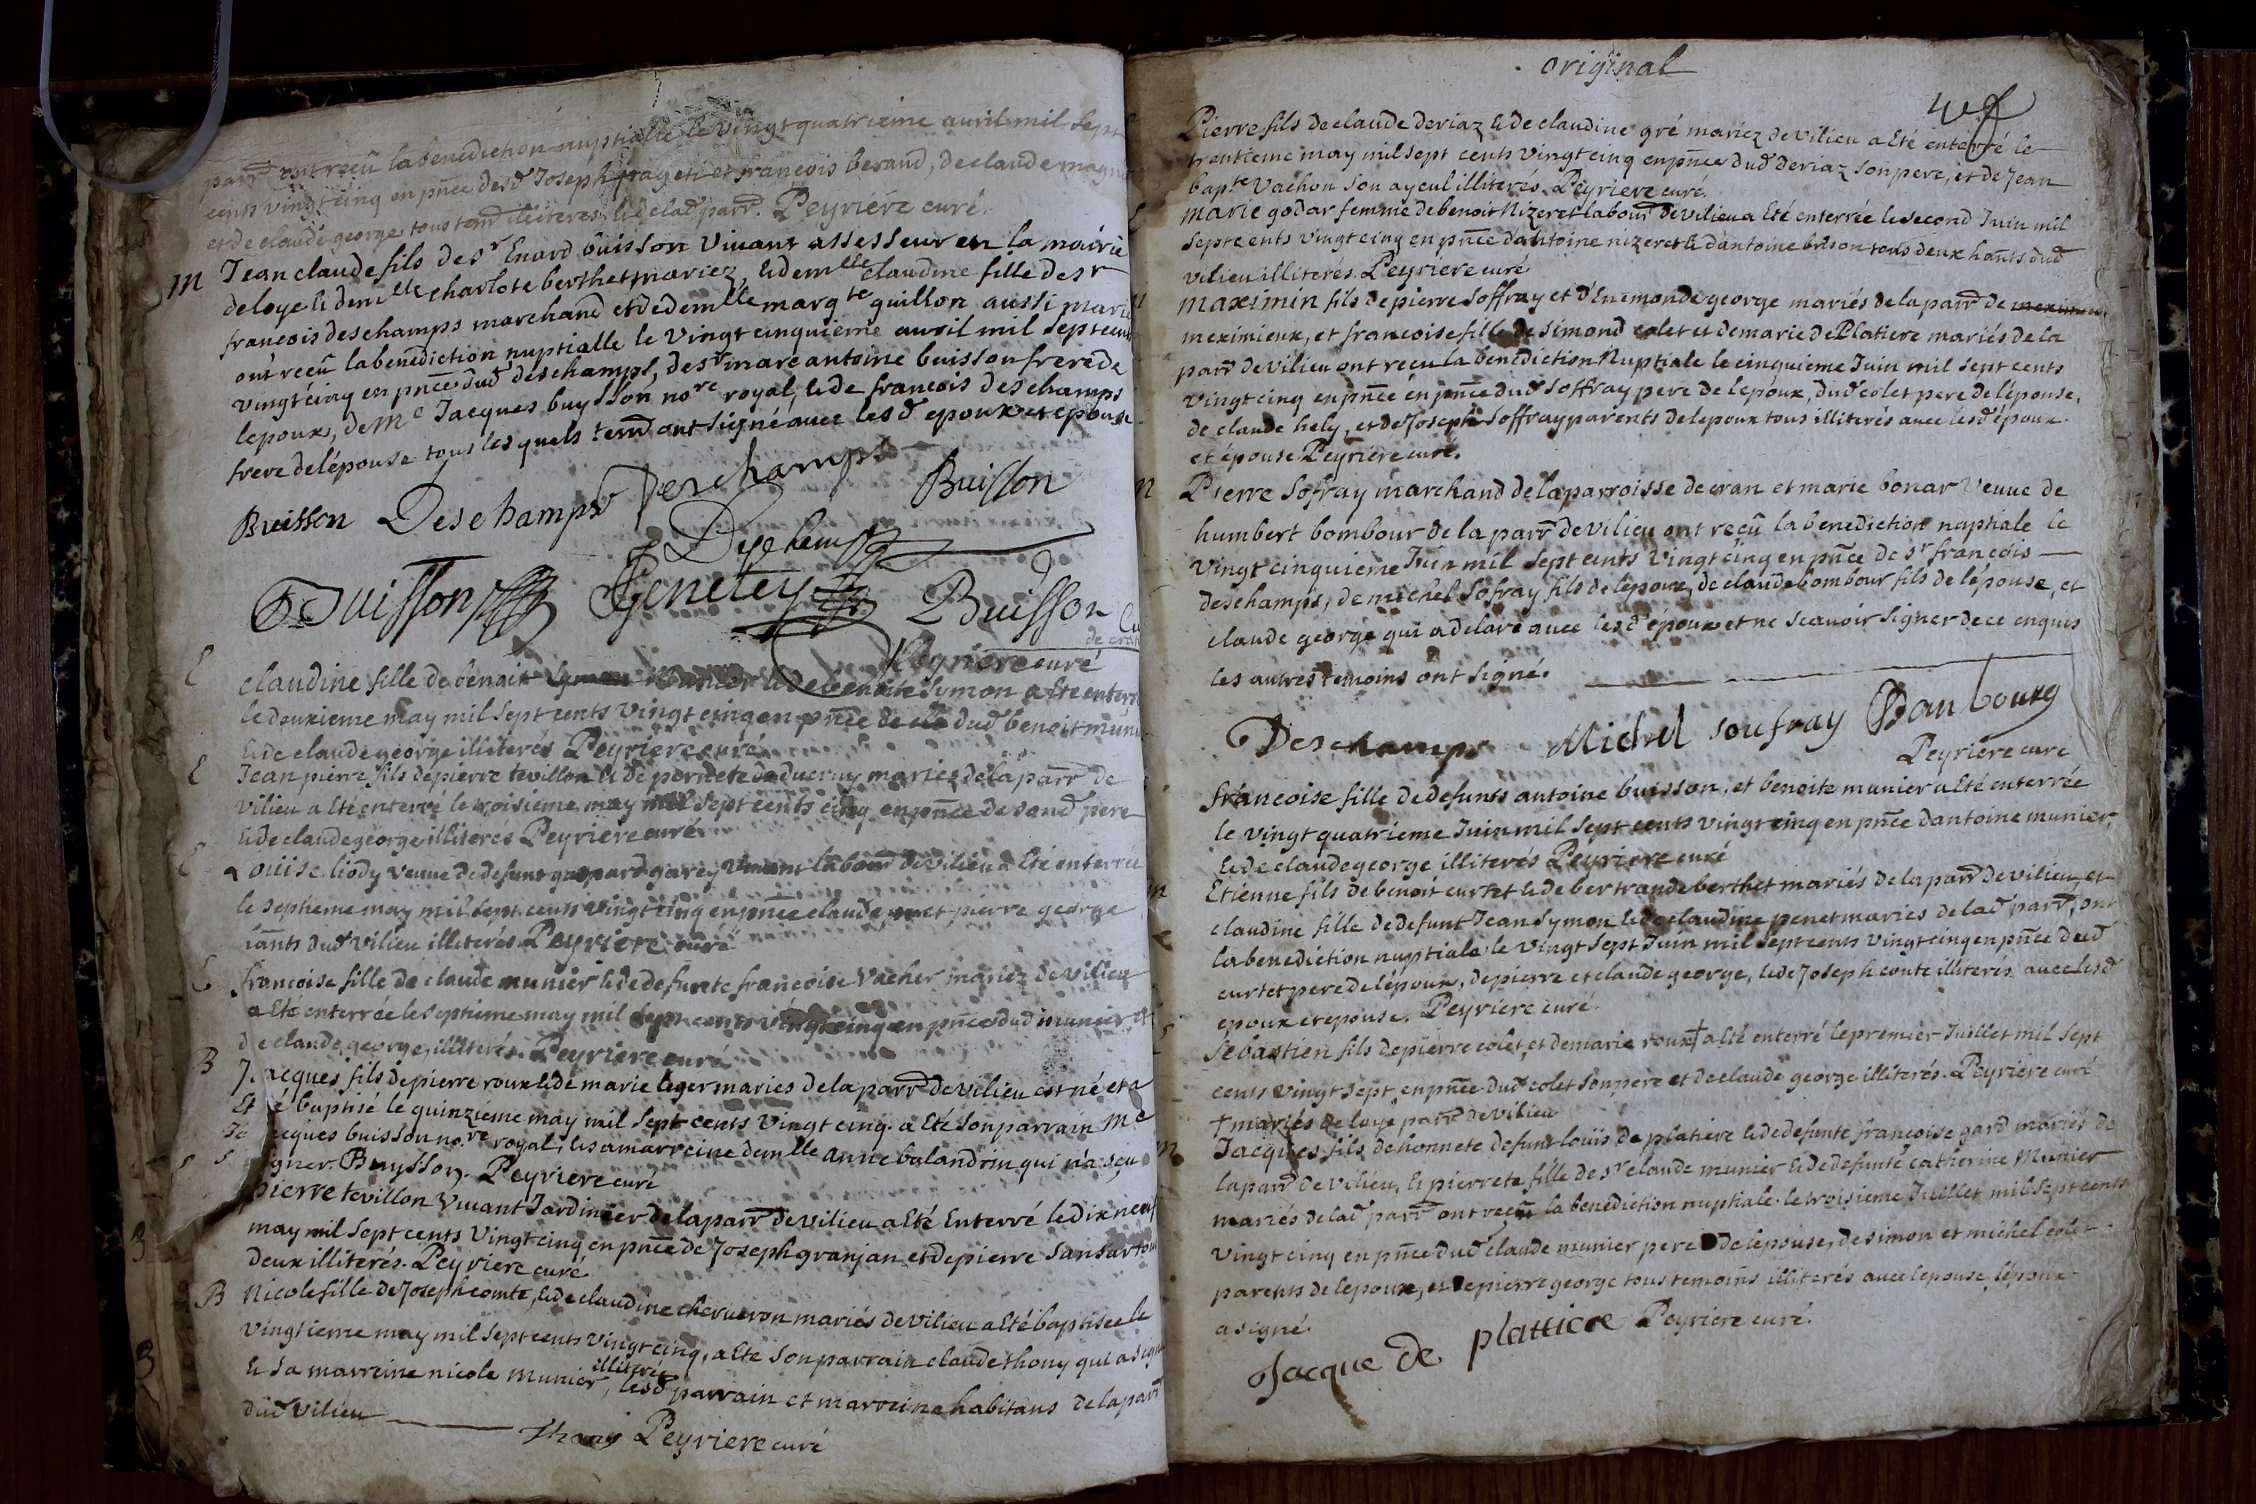 parr ont reçu la benediction nuptialle le vingt quatrieme avril mil sept
cents vingt cinq en pnce desd Joseph frageti et francois beraud, de claude magn
et de claude george tous tem illiteres & de lad parr. Peyriere curé
M Jean claude fils de sr Enard buisson vivant assesseur en la mairie
de loye & de demlle charlote berthet mariez, & demlle claudine fille de sr
francois deschamps marchand et de demlle margte guillon aussi marie
ont reçu la benediction nuptialle le vingt cinquieme avril mil sept cents
vingt cinq en pnce dud deschamps, de sr marc antoine buisson frere de
lepoux, de Me Jacques buysson nore royal, & de francois deschamps
frere de lépouse tous lesquels tem ont signé avec lesd epoux et epouse
Buisson Deschamps Deschamps Buisson
Deschamps
Buisson Genetey Buisson Cu
de cran
Peyriere curé
claudine fille de benoit munier & de benoite Symon a Eté enterré
le deuxieme may mil sept cents vingt cinq en pnce dud benoit muni
& de claude george illiterés Peyriere curé
Jean pierre fils de pierre tevillon & de pernete mariez de la parr de
vilieu a Eté enterré le troisieme may mil sept cents cinq en pnce de sond pere
& de claude george illiterés Peyriere curé
Louise liody veuve de defunt gaspard garey vivant labour de vilieu a Eté enterrée
le septieme may mil sept cents vingt cinq en pnce claude et pierre george
hants dud vilieu illiterés Peyriere curé
francoise fille de claude munier & de defunte francoise vacher mariez de vilieu
a Eté enterrée le septieme may mil sept cents vingt cinq en pnce dud munier et
de claude george, illiterés. Peyriere curé
B Jacques fils de pierre roux & de marie leger mariés de la parr de vilieu est né et a
Eté baptisé le quinzieme may mil sept cents vingt cinq. a Eté son parrain Me
Jacques buisson nore royal, & sa marreine demlle anne balandrin qui n'a sçu
signer. Buysson. Peyriere curé
pierre tevillon vivant Jardinier de la parr de vilieu a Eté Enterré le dix neuf
may mil sept cents vingt cinq en pnce de Joseph granjan et de pierre tous
deux illiterés. Peyriere curé
B Nicole fille de Joseph comte, & de claudine chervieron mariés de vilieu a Eté baptisée le
vingtieme may mil sept cents vingt cinq, a Eté son parrain claude thony qui a signé
& sa marreine nicole munier illiteré, lesd parrain et marreine habitans de la parr
dud vilieu
Thony Peyriere curé
original
Pierre fils de claude deriaz & de claudine gré mariez de vilieu a Eté enterré le
trentieme may mil sept cents vingt cinq en pnce dud deriaz son pere, et de Jean
bapte vachon son ayeul illiterés. Peyriere curé.
marie godar femme de benoit Nizeret labour de vilieu a Eté enterrée le second Juin mil
sept cents vingt cinq en pnce dantoine nizeret & dantoine brison tous deux hants dud
vilieu illiterés. Peyriere curé
maximin fils de pierre Soffray et d'Enemonde george mariés de la parr de
meximieux, et francoise fille de simond colet et de marie de Platiere mariés de la
parr de vilieu ont reçu la benediction Nuptiale le cinquieme Juin mil sept cents
vingt cinq en pnce en pnce dud soffray pere de lépoux, dud colet pere de lépouse,
de claude hely, et de Joseph Soffray parents de lepoux tous illiterés avec lesd époux
et epouse Peyriere curé.
m Pierre Sofray marchand de la parroisse de cran et marie bonar veuve de
humbert bombour de la parr de vilieu ont reçu la benediction nuptiale le
vingt cinquieme Juin mil sept cents vingt cinq en pnce de sr francois
deschamps, de michel Sofray fils de lepoux, de claude bombour fils de lépouse, et
claude george qui a declaré avec lesd époux et ne scavoir signer de ce enquis
les autres temoins ont signé.
Deschamps Michel soufray Banbourg
Peyriere curé
francoise fille de defunts antoine buisson, et benoite munier a Eté enterrée
le vingt quatrieme Juin mil sept cents vingt cinq en pnce dantoine munier,
& de claude george illiterés Peyriere curé
m Etienne fils de benoit curtet & de bertrande berthet mariés de la parr de vilieu, et
claudine fille de defunt Jean Symon & de claudine penet mariés de lad parr, ont
la benediction nuptiale le vingt sept Juin mil sept cents vingt cinq en pnce dud
curtet pere de lépoux, de pierre et claude george, & de Joseph conte illiterés avec lesd
epoux et epouse. Peyriere curé.
Sebastien fils de pierre colet, et de marie roux † a Eté enterré le premier Juillet mil sept
cents vingt sept, en pnce dud colet son pere et de claude george illiterés. Peyriere curé
† mariés de loye parr de vilieu
m Jacques fils de honnete defunt louis de platiere & de defunte francoise gard mariés de
la parr de vilieu, & pierrete fille de sr claude munier & de defunte catherine Munier
mariés de lad parr ont reçeu la benediction nuptiale le troisieme Juillet mil sept cents
vingt cinq en pnce dud claude munier pere de lépouse, de simon et michel colet
parents de lepoux, et de pierre george tous temoins illiterés avec lepouse, lépoux
a signé.
Jacque de plattiere Peyriere curé.